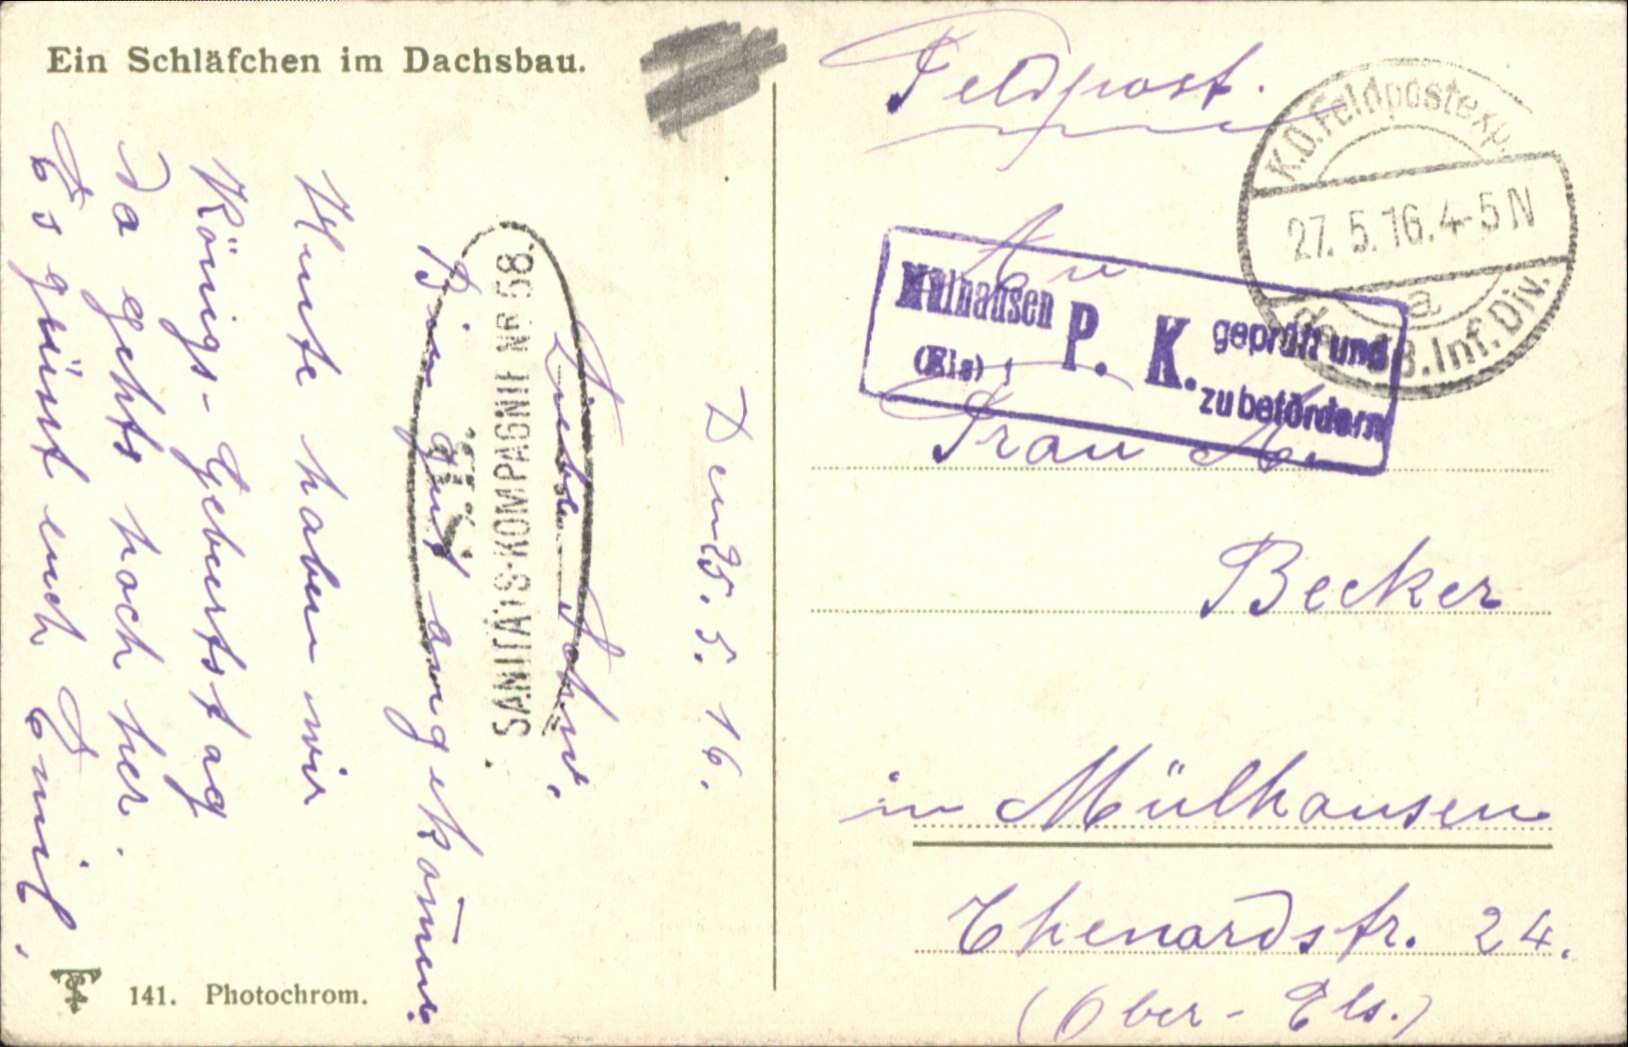 Ein Schläfchen im Dachsbau.
Den 25. 5. 16.
Bin gut angekom̄en.
Heute haben wir
Königs-Geburtstag
da gehts hoch her.
Es grüst euch Emil.
SANITÄTS-KOMPAGNIE NR 58.
141. Photochrom.
Feldpost.
K.D. Feldpostexp.
27. 5. 16. 4-5 N
a
der 58. Inf. Div.
An
Mülhausen
(Els)
P. K.
geprüft und
zu befördern
Frau
Becker
in Mülhausen
Thenardstr. 24.
(Ober-Els.)